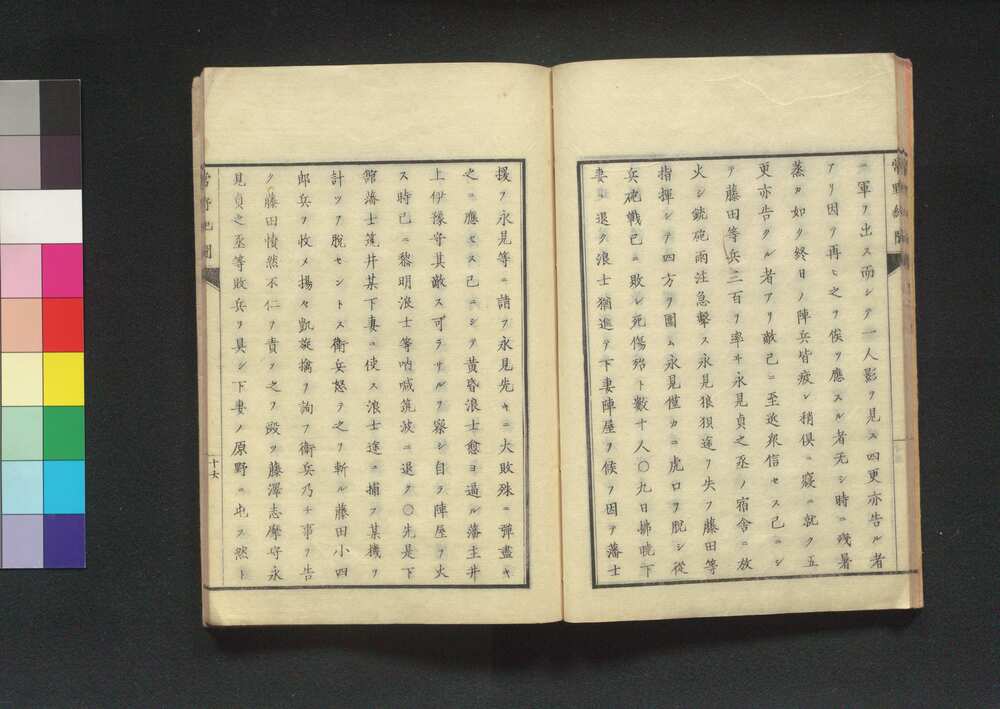 ニ軍ヲ出ス而シテ一人影ヲ見ス四更亦告ル者
アリ因ヲ再ヒ之ヲ俟ツ應スル者无シ時ニ残暑
蒸カ如ク終日ノ陣兵皆疲レ稍倶ニ寝ニ就ク五
更亦告クル者アリ敵已ニ至逖衆信セス已ニシ
テ藤田等兵二百ヲ率ヰ永見貞之丞ノ宿舎ニ放
火シ銃砲雨注急撃ス永見狼狽途ヲ失フ藤田等
指揮シテ四方ヲ圍ム永見僅カニ虎口ヲ脱シ從
兵砲戦已ニ敗レ死傷殆ト數十人〇九日拂暁下
妻ニ退ク浪士猶進テ下妻陣屋ヲ候フ因テ藩士
援ヲ永見等ニ請フ永見先キニ大敗殊ニ彈盡キ
之ニ應セス已ニシテ黄昏浪士愈ヨ逼ル藩主井
上伊豫守其敵ス可ラサルヲ察シ自ラ陣屋ヲ火
ス時已ニ黎明浪士等吶喊筑波ニ退ク〇先是下
館藩士筧井某下妻ニ使ス浪士途ニ捕フ某機ヲ
計ツテ脱セントス衛兵怒テ之ヲ斬ル藤田小四
郎兵ヲ收メ揚々凱旋擒ヲ詢フ衛兵乃チ事ヲ告
ク藤田憤然不仁ヲ責ツ之ヲ毆ツ藤澤志摩守永
見貞之丞等敗兵ヲ具シ下妻ノ原野ニ屯ス然ト
十七